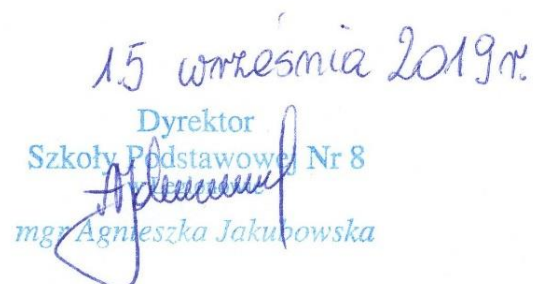 15 września 2019 r.
Dyrektor
Szkoły Podstawowej Nr 8
mgr Agnieszka Jakubowska